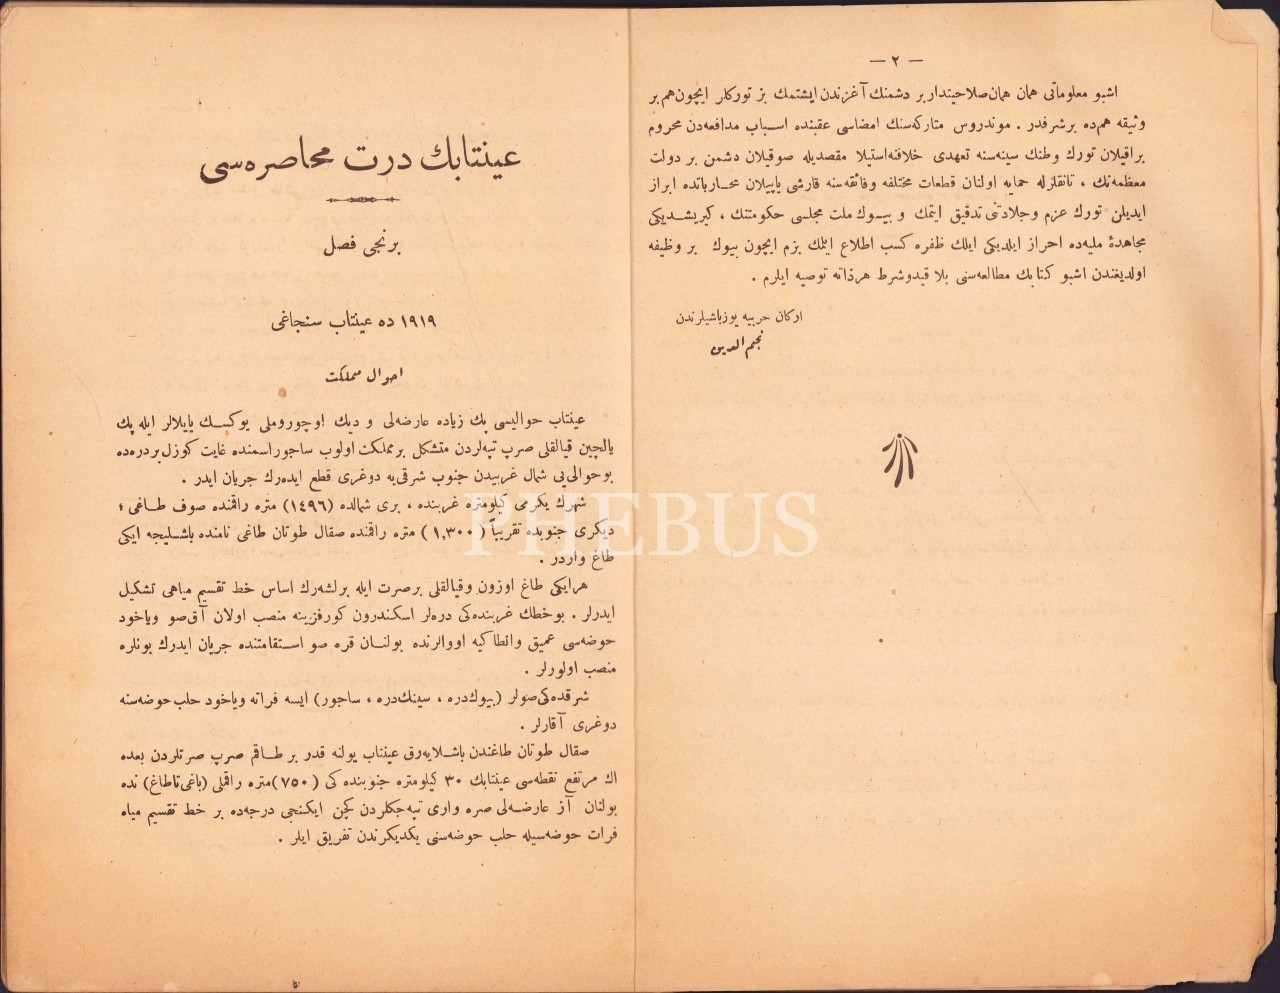 — ٢ —
اشبو معلوماتی همان همان صلاحیتدار بر دشمنك آغزندن ایشتمك بز تورکلر ایچون هم بر
وثیقه هم‌ده بر شرفدر . موندروس متارکه‌سنك امضاسی عقبنده اسباب مدافعه‌دن محروم
براقیلان تورك وطنك سینه‌سنه تعهدی خلافنه استیلا مقصدیله صوقیلان دشمن بر دولت
معظمه‌نك ، تانقلرله حمایه اولنان قطعات مختلفه وفائقه‌سنه قارشی یاپیلان محارباتده ابراز
ایدیلن تورك عزم و جلادتنی تدقیق ایتمك و بیوك ملت مجلسی حکومتنك ، کیریشدیکی
مجاهدۀ ملیه‌ده احراز ایلدیکی ایلك ظفره کسب اطلاع ایتمك بزم ایچون بیوك بر وظیفه
اولدیغندن اشبو کتابك مطالعه‌سنی بلا قیدوشرط هر ذاته توصیه ایلرم .
ارکان حربیه یوزباشیلرندن
نجم الدین
عینتابك درت محاصره‌سی
برنجی فصل
١٩١٩ ده عینتاب سنجاغی
احوال مملکت
عینتاب حوالیسی پك زیاده عارضه‌لی و دیك اوچوروملی یوکسك یایلالر ایله پك
یالچین قیالقلی صرپ تپه‌لردن متشکل بر مملکت اولوب ساجور اسمنده غایت کوزل بر دره‌ده
بو حوالی‌یی شمال غربیدن جنوب شرقی‌یه دوغری قطع ایده‌رك جریان ایدر .
شهرك یکرمی کیلومتره غربنده ، بری شمالده (١٤٩٦) متره راقمنده صوف طاغی ؛
دیکری جنوبده تقریباً (١,٣٠٠) متره راقمنده صقال طوتان طاغی نامنده باشلیجه ایکی
طاغ واردر .
هر ایکی طاغ اوزون وقیالقلی بر صرت ایله برلشه‌رك اساس خط تقسیم میاهی تشکیل
ایدرلر . بو خطك غربنده‌کی دره‌لر اسکندرون کورفزینه منصب اولان آق صو ویاخود
حوضه‌سی عمیق وانطاکیه اووالرنده بولنان قره صو استقامتنده جریان ایدرك بونلره
منصب اولورلر .
شرقده‌کی صولر (بیوك دره ، سینك دره ، ساجور) ایسه فراته ویاخود حلب حوضه‌سنه
دوغری آقارلر .
صقال طوتان طاغندن باشلایه‌رق عینتاب یولنه قدر بر طاقم صرپ صرتلردن بعده
اك مرتفع نقطه‌سی عینتابك ٣٠ کیلومتره جنوبنده کی (٧٥٠) متره راقملی (باغی تاطاغ) نده
بولنان آز عارضه‌لی صره واری تپه‌جکلردن کچن ایکنجی درجه‌ده بر خط تقسیم میاه
فرات حوضه‌سیله حلب حوضه‌سنی یکدیکرندن تفریق ایلر .
PHEBUS